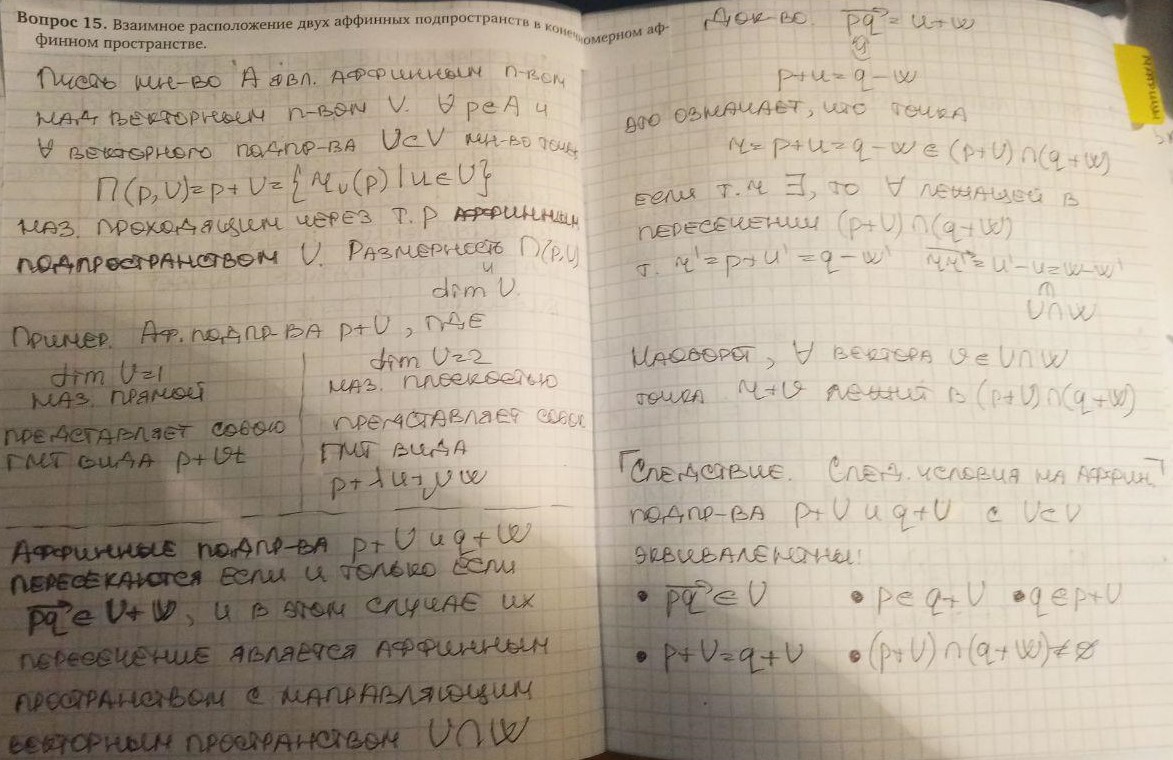 Вопрос 15. Взаимное расположение двух аффинных подпространств в конечномерном аф-
финном пространстве.
Пусть мн-во A явл. аффинным п-вом
над векторным п-вом V. ∀ p∈A и
∀ векторного подпр-ва U⊂V мн-во точек
П(p,U)=p+U={τᵤ(p) | u∈U}
наз. проходящим через т. p аффинным
подпространством U. Размерность П(p,U)
"
dim U.
Пример. Аф. подпр-ва p+U, где
dim U=1
наз. прямой
представляет собою
ГМТ вида p+vt
dim U=2
наз. плоскостью
представляет собою
ГМТ вида
p+λu+μw
Аффинные подпр-ва p+U и q+W
пересекаются если и только если
p͞q⃗∈U+W, и в этом случае их
пересечение является аффинным
пространством с направляющим
векторным пространством U∩W
Док-во. pq⃗=u+w
⇕
p+u=q-w
это означает, что точка
r=p+u=q-w∈(p+U)∩(q+W)
Если т. r ∃, то ∀ лежащей в
пересечении (p+U)∩(q+W)
т. r'=p+u'=q-w' rr'⃗=u'-u=w-w'
∩
U∩W
Наоборот, ∀ вектора v∈U∩W
точка r+v лежит в (p+U)∩(q+W)
Следствие. След. условия на аффин.
подпр-ва p+U и q+U с U⊂V
эквивалентны:
• pq⃗∈U • p∈q+U • q∈p+U
• p+U=q+U • (p+U)∩(q+W)≠∅